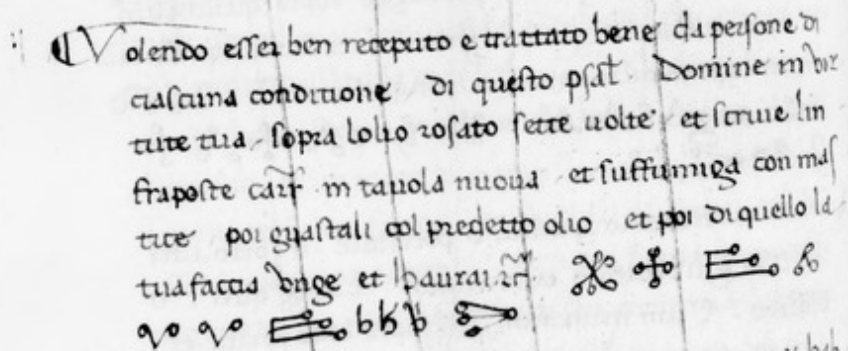 Volendo esser ben receputo e trattato bene da persone di
ciascuna conditione di questo psal̄ Domine in vir
tute tua sopra lolio rosato sette uolte et scriue lin
fraposte in tauola nuoua et suffumiga con mas
tice poi guastali col predetto olio et poi di quello la
tua faccia vnge et haurai